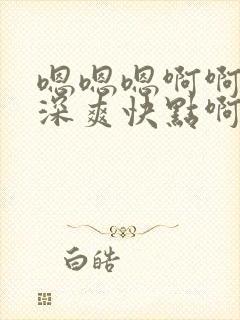 嗯嗯嗯啊啊
深爽快點啊
白皓